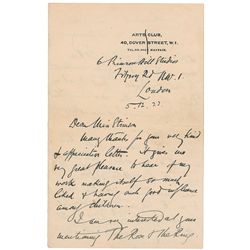 ARTS CLUB,
40, DOVER STREET, W.1.
6 Primrose Hill Studios
Fitzroy Rd N.W.1
London
5.12.33
Dear Miss
Many thanks for your very kind
& appreciative letter. It gives me
very great pleasure to hear of my
work making itself so much
liked & having such good influence
among children.
I am very interested at your
mentioning The Rose & the Ring